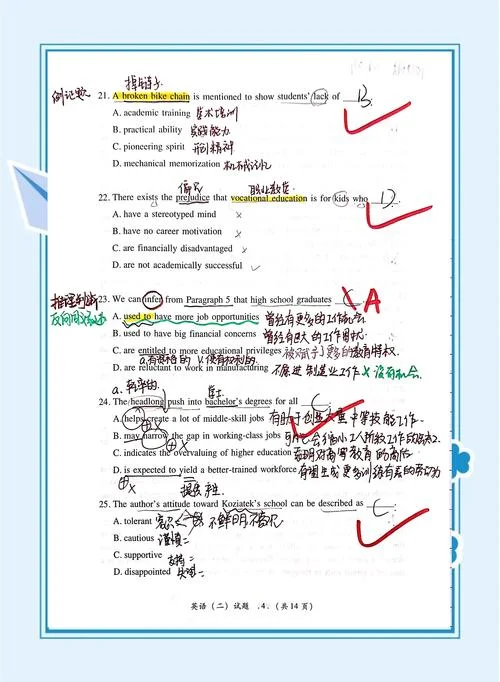 掉链子
例证题 21. A broken bike chain is mentioned to show students' lack of B.
A. academic training 学术培训
B. practical ability 实践能力
C. pioneering spirit 开创精神
D. mechanical memorization 机械记忆
偏见 职业教育
22. There exists the prejudice that vocational education is for kids who D.
A. have a stereotyped mind ×
B. have no career motivation ×
C. are financially disadvantaged ×
D. are not academically successful ✓
推理判断 23. We can infer from Paragraph 5 that high school graduates C × A
反向同义改述 A. used to have more job opportunities 曾经有更多的工作机会
B. used to have big financial concerns 曾经有巨大的
C. are entitled to more educational privileges 被赋予了更多的教育特权
a.有资格的 v.
D. are reluctant to work in manufacturing 不愿进制造业工作 × 没有机会
a.
24. The headlong push into bachelor's degrees for all C
A. helps create a lot of middle-skill jobs 有助于创造大量中等技能工作
B. may narrow the gap in working-class jobs
C. indicates the overvaluing of higher education 表明对高等教育的高估
D. is expected to yield a better-trained workforce
25. The author's attitude toward Koziatek's school can be described as C.
A. tolerant 容忍 不鲜明不偏见
B. cautious 谨慎
C. supportive 支持
D. disappointed 失望
英语（二）试题 .4.（共14页）